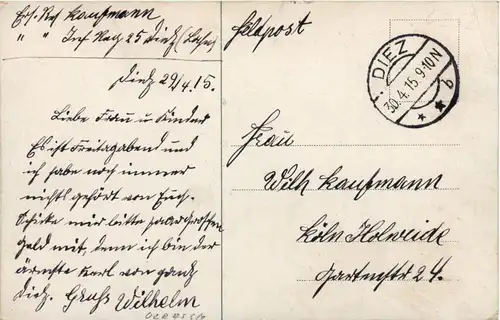 Ers. Res. Kaufmann
" " Inf Reg 25 Diez (Lahn)
Diez 29/4.15.
Liebe Frau u Kinder
Es ist Freitagabend und
ich habe noch immer
nichts gehört von Euch.
Schicke mir bitte paar Groschen
Geld mit, denn ich bin der
ärmste Kerl von ganz
Diez. Gruß Wilhelm
Feldpost
DIEZ
30.4.15.9-10N
* * b
Frau
Wilh Kaufmann
Köln Holweide
Gartenstr 24.